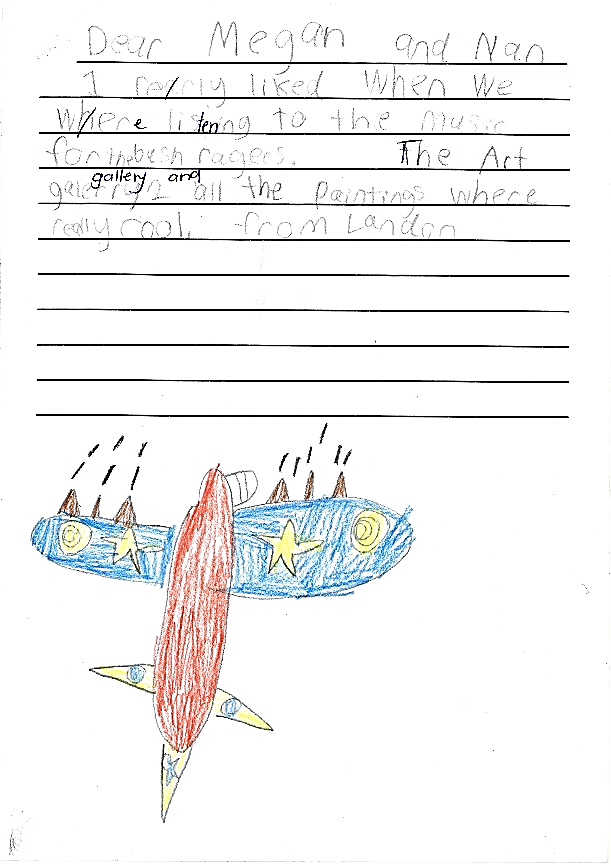 Dear Megan and Nan
I rearly liked When We
Where listening to the music
for the bush ragers. The Art
gallery and all the paintings where
really cool. from Landon